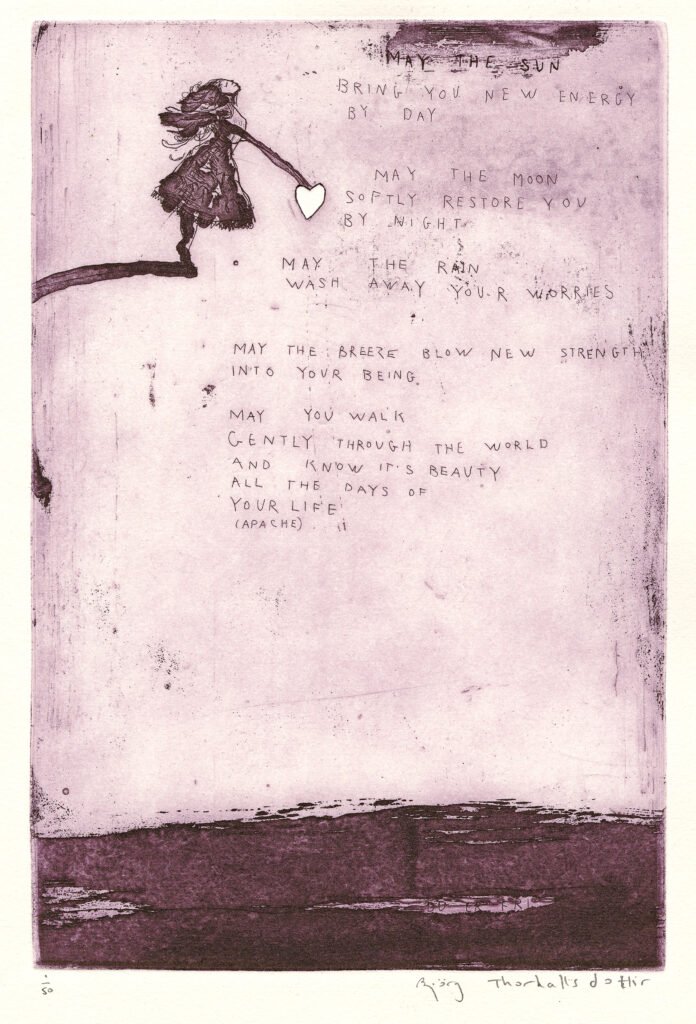 MAY THE SUN
BRING YOU NEW ENERGY
BY DAY
MAY THE MOON
SOFTLY RESTORE YOU
BY NIGHT
MAY THE RAIN
WASH AWAY YOUR WORRIES
MAY THE BREEZE BLOW NEW STRENGTH
INTO YOUR BEING.
MAY YOU WALK
GENTLY THROUGH THE WORLD
AND KNOW IT'S BEAUTY
ALL THE DAYS OF
YOUR LIFE
(APACHE)
Björg Thorhallsdottir